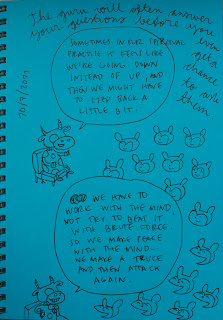 The guru will often answer
your questions before you even
get a
chance
to ask
them
70/9/2021
SOMETIMES IN OUR SPIRITUAL
PRACTICE IT FEELS LIKE
WE'RE GOING DOWN
INSTEAD OF UP, AND
THEN WE MIGHT HAVE
TO STEP BACK A
LITTLE BIT.
WE HAVE TO
WORK WITH THE MIND,
NOT TRY TO BEAT IT
WITH BRUTE FORCE.
SO WE MAKE PEACE
WITH THE MIND—
WE MAKE A TRUCE
AND THEN ATTACK
AGAIN.